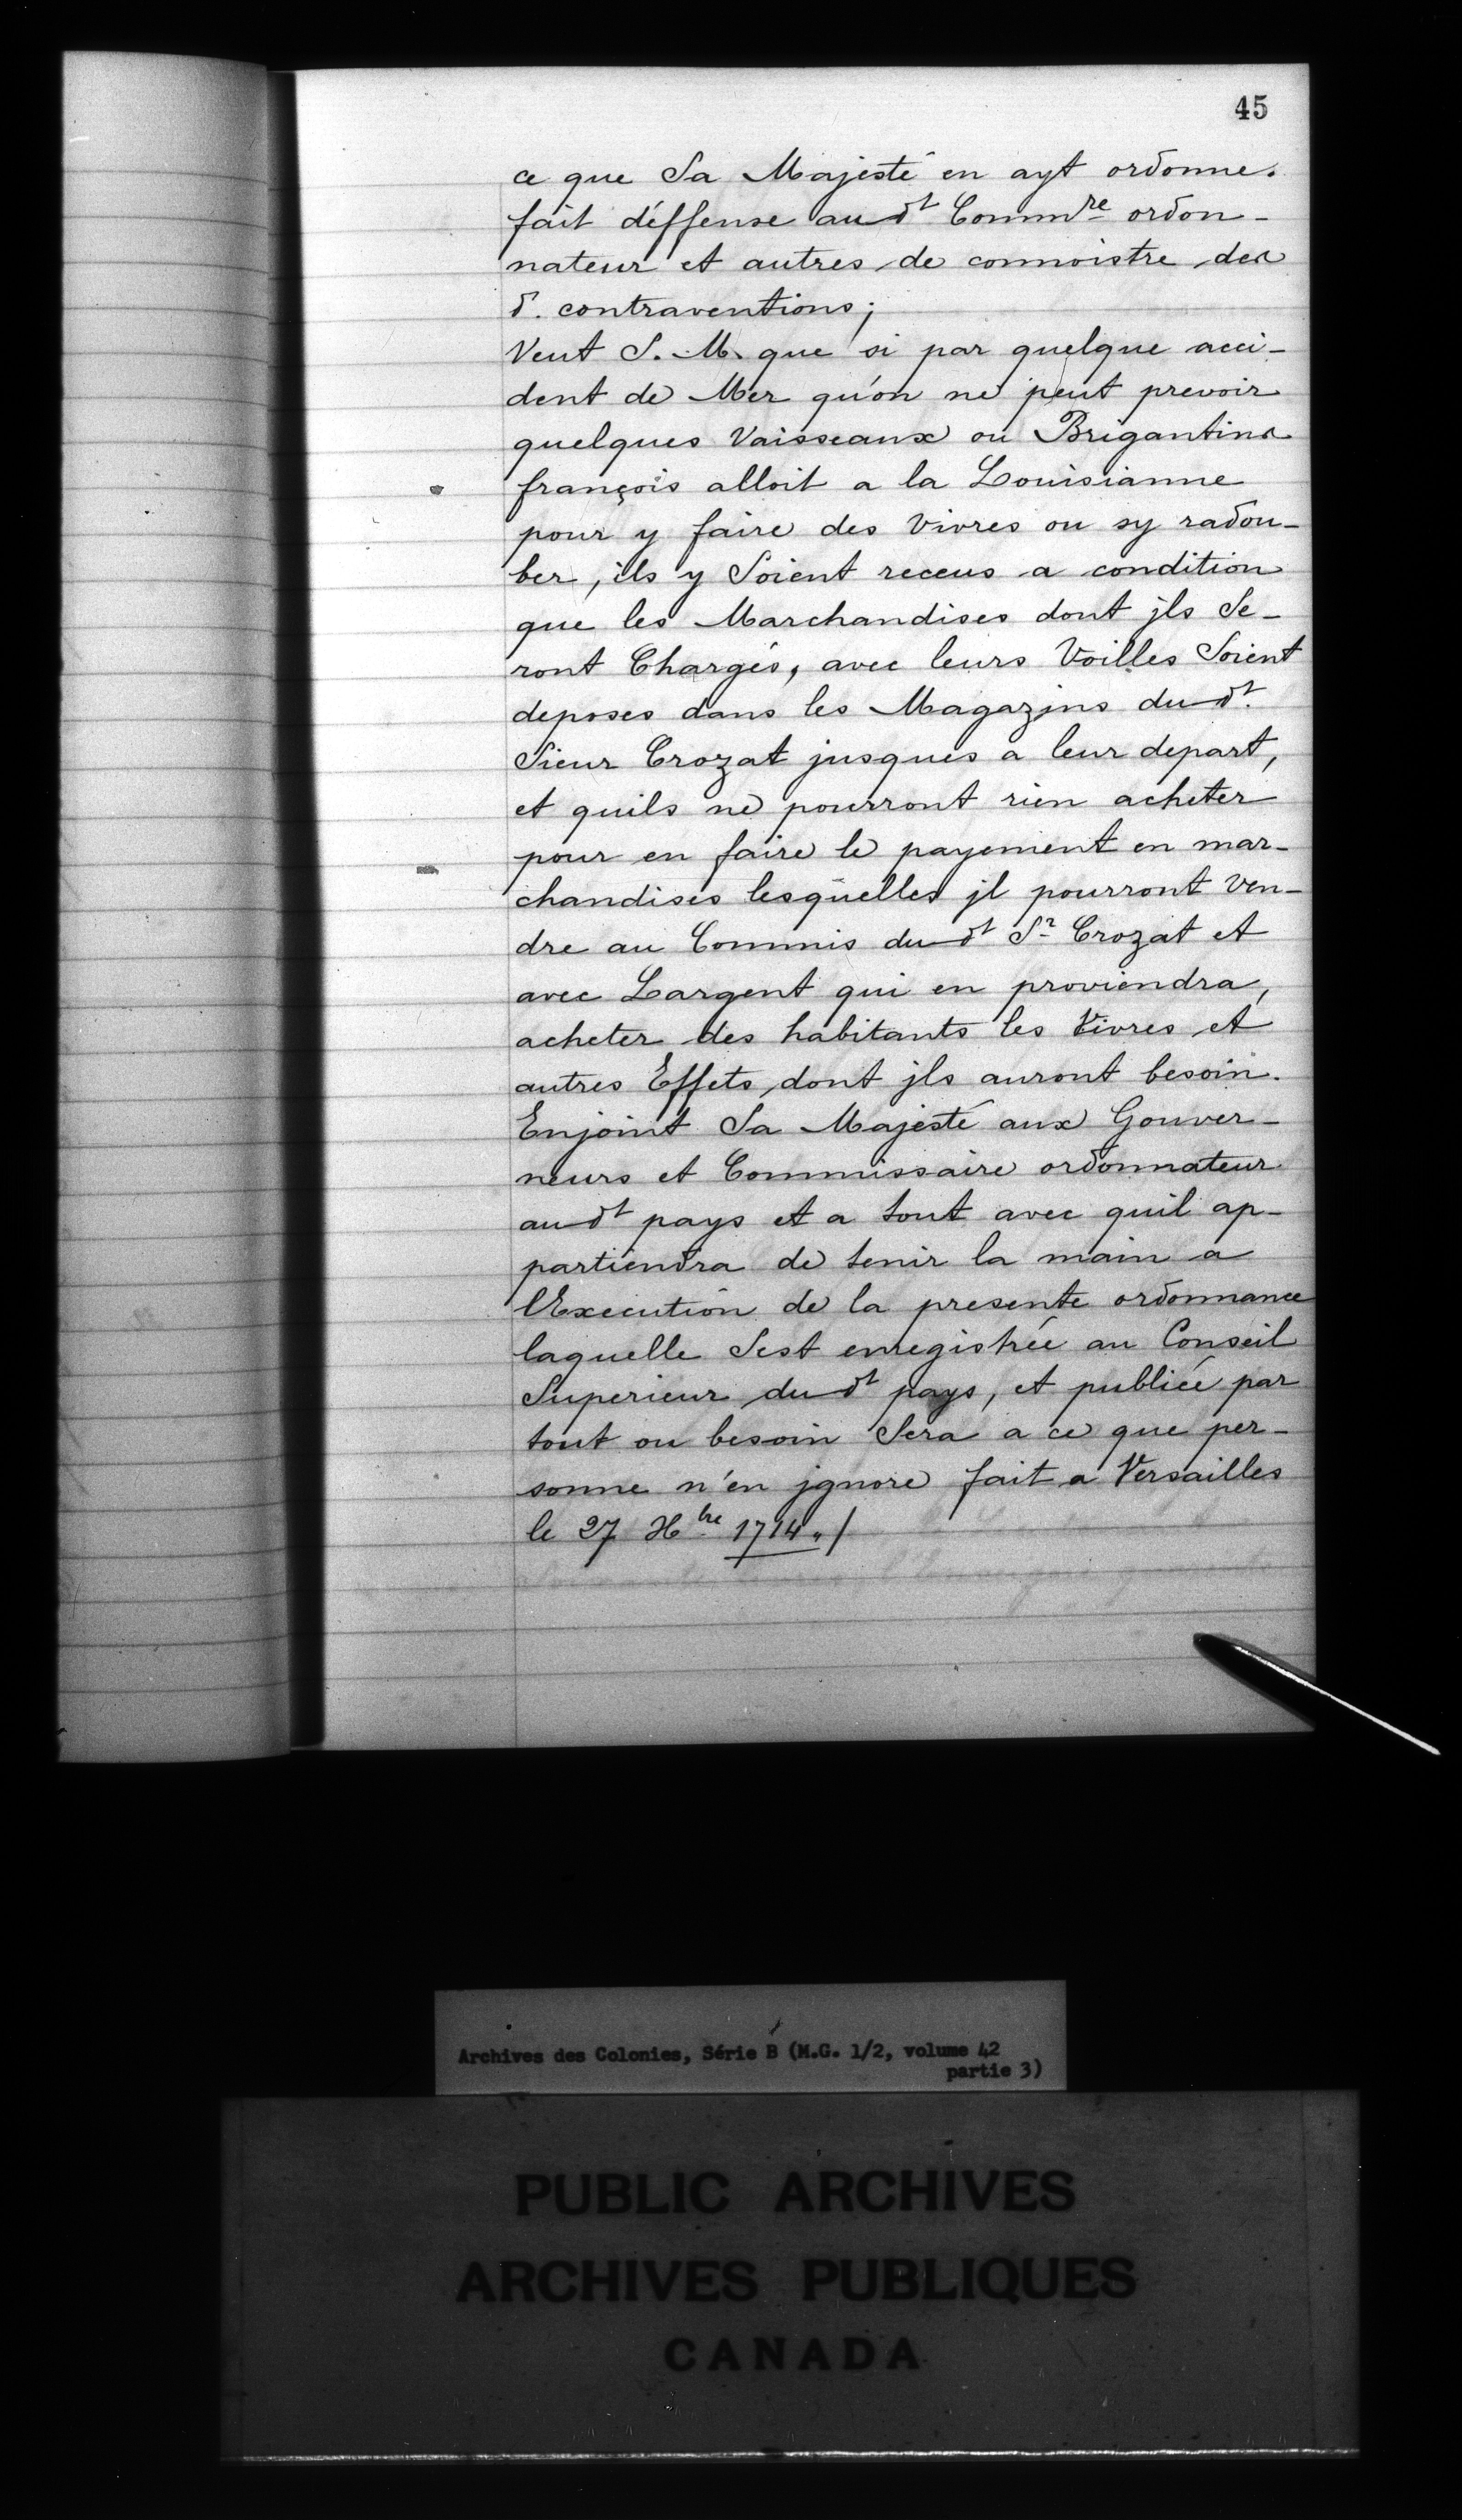 45
ce que Sa Majesté en ayt ordonne.
fait déffense au dt Commre ordon-
nateur et autres de connoistre des
d. contraventions;
Veut S. M. que si par quelque acci-
dent de Mer qu'on ne peut prevoir
quelques Vaisseaux ou Brigantins
françois alloit a la Louisianne
pour y faire des Vivres ou sy radou-
ber, ils y Soient receus a condition
que les Marchandises dont jls Se-
ront Chargés, avec leurs Voilles Soient
deposes dans les Magazins du dt.
Sieur Crozat jusques a leur depart,
et quils ne pourront rien acheter
pour en faire le payement en mar-
chandises lesquelles jl pourront ven-
dre au Commis du dt Sr Crozat et
avec Largent qui en proviendra,
acheter des habitants les Vivres et
autres Effets dont jls auront besoin.
Enjoint Sa Majesté aux Gouver-
neurs et Commissaire ordonnateur
au dt pays et a tout avec quil ap-
partiendra de tenir la main a
lExecution de la presente ordonnance
laquelle Sest enregistrée au Conseil
Superieur du dt pays, et publiée par
tout ou besoin Sera a ce que per-
sonne n'en jgnore fait a Versailles
le 27 Xbre 1714 ./
Archives des Colonies, Série B (M.G. 1/2, volume 42
partie 3)
PUBLIC ARCHIVES
ARCHIVES PUBLIQUES
CANADA